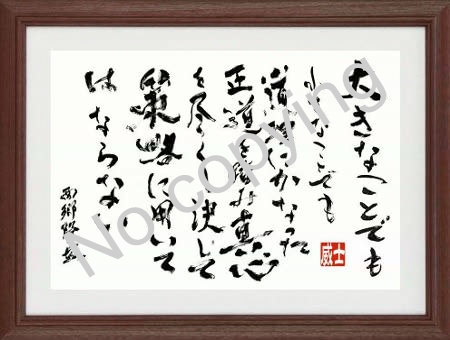 大きなことでも
小さなことでも
道理にかなった
正道を踏み真心
を尽くし決して
策略を用いて
はならない
西郷隆盛
威士
No copying